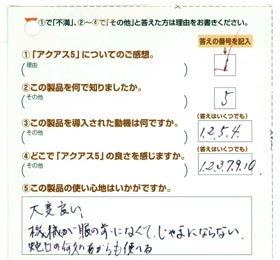 ①で「不満」、②～④で「その他」と答えた方は理由をお書きください。
答えの番号を記入
①「アクアス5」についてのご感想。
(理由 ) 1
②この製品を何で知りましたか。
(その他 ) 5
③この製品を導入された動機は何ですか。
(答えはいくつでも)
(その他 ) 1.2.5.4.
④どこで「アクアス5」の良さを感じますか。
(答えはいくつでも)
(その他 ) 1.2.3.7.9.10.
⑤この製品の使い心地はいかがですか。
大変良い。
機械が眼の前になくて、じゃまにならない。
蛇口の からも使える